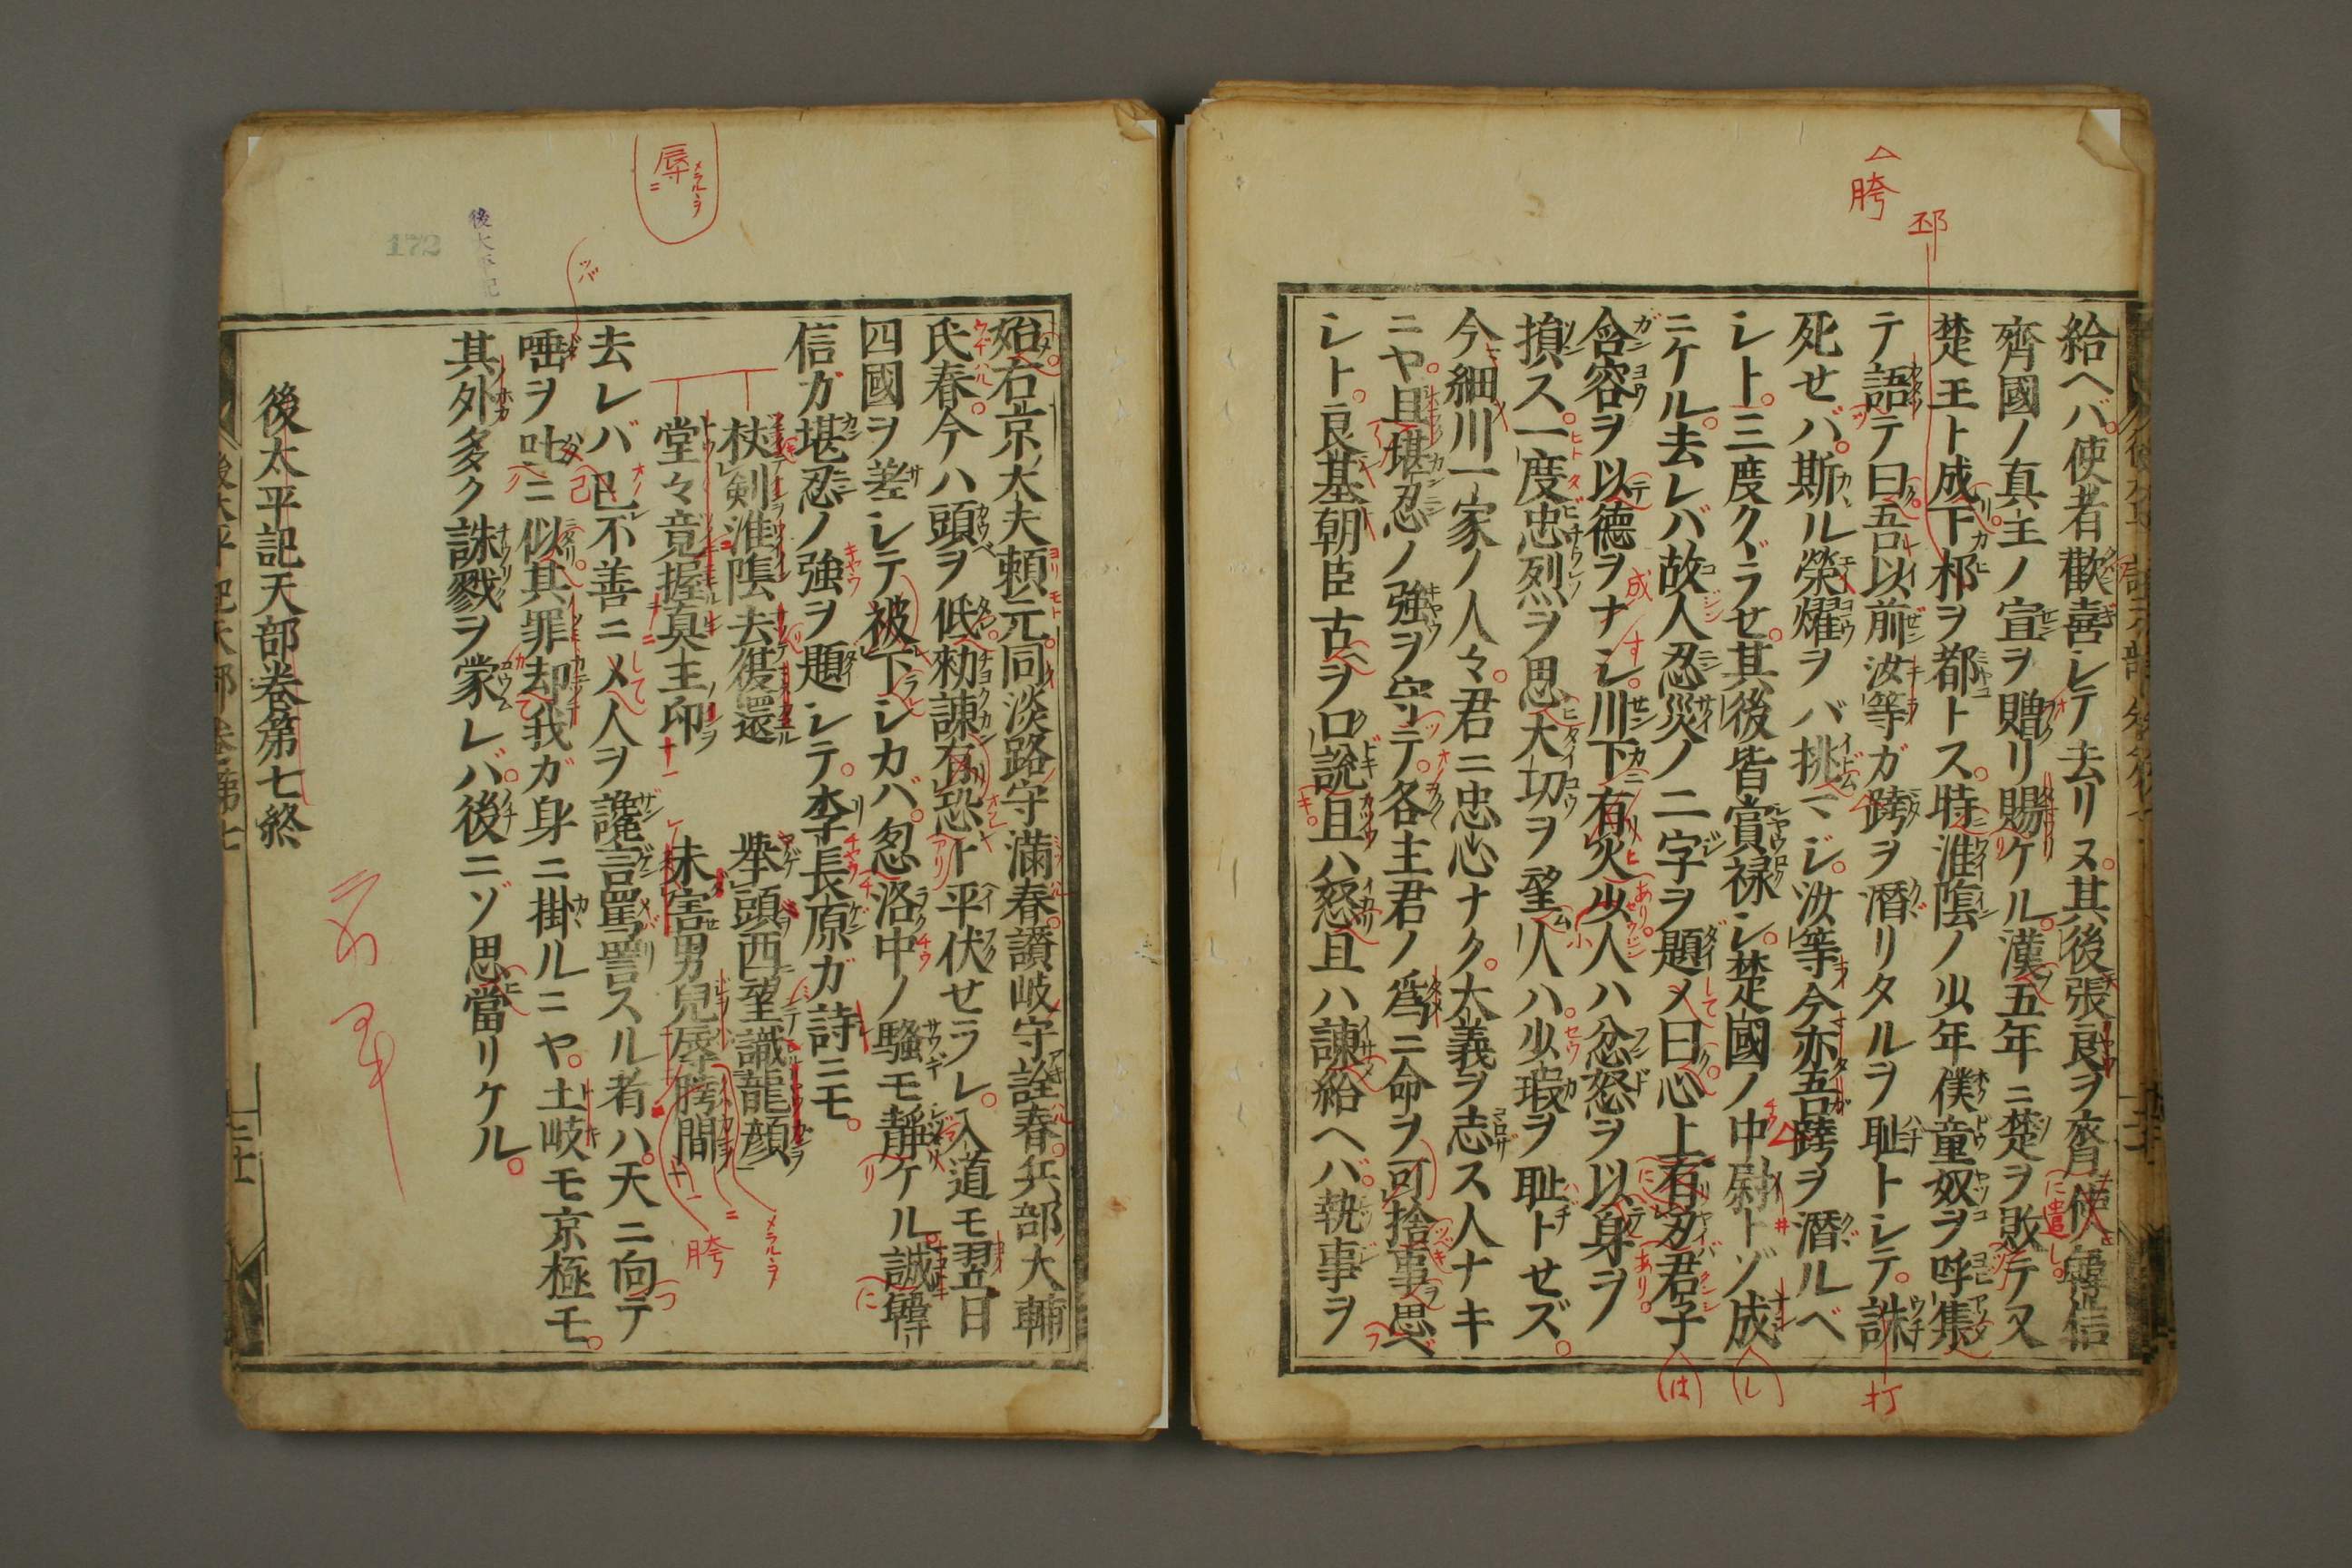 給ヘバ使者歡喜シテ去リヌ其後張良ヲ齊使韓信
齊國ノ真主ノ宣ヲ贈リ賜ケル漢五年ニ楚ヲ敗テ又
楚王ト成下邳ヲ都トス時淮陰ノ少年僕童奴ヲ呼集
テ語テ曰吾以前汝等ガ跨ヲ潛リタルヲ耻トシテ誅
死セバ斯ル榮耀ヲバ挑マジ汝等今亦吾跨ヲ潛ルベ
シト三度クヾラせ其後皆賞禄シ楚國ノ中尉トゾ成
ニケル去レバ故人忍災ノ二字ヲ題メ曰心上有刃君子
含容ヲ以德ヲナシ川下有火少人ハ忿怒ヲ以身ヲ
損ス一度忠烈ヲ思大切ヲ望人ハ少瑕ヲ耻トせズ
今細川一家ノ人々君ニ忠心ナク大義ヲ志ス人ナキ
ニヤ且堪忍ノ強ヲ守テ各主君ノ爲ニ命ヲ可捨事思ベ
シト良基朝臣古ヲ口說且ハ怒且ハ諫給ヘバ執事ヲ
始右京大夫頼元同淡路守滿春讃岐守詮春兵部大輔
氏春今ハ頭ヲ低勅諫有恐ト平伏せラレ入道モ翌日
四國ヲ差シテ被下シカバ忽洛中ノ騒モ靜ケル誠韓
信ガ堪忍ノ強ヲ題シテ李長原ガ詩ニモ
杖剣淮陰去復還 擧頭西望識龍顔
堂々竟握真主印 未害男兒辱胯間
去レバ己不善ニメ人ヲ讒言罵詈スル者ハ天ニ向テ
唾ヲ吐ニ似其罪却我ガ身ニ掛ルニヤ土岐モ京極モ
其外多ク誅戮ヲ蒙レバ後ニゾ思當リケル
後太平記天部卷第七終
胯
邳
打
辱
メラルヽヲ
胯
メラルヽヲ
後太平記
172